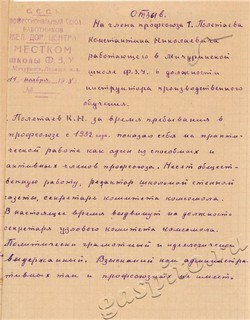 СССР
ПРОФЕССИОНАЛЬНЫЙ СОЮЗ
РАБОТНИКОВ
ЖЕЛ. ДОР. ЦЕНТРА
МЕСТКОМ
школы Ф.З.У.
ОТЗЫВ.
На члена профсоюза т. Полетаева
Константина Николаевича
работающего в Мичуринской
школе Ф.З.У. в должности
инструктора производственного
обучения.
Полетаев К.Н. за время пребывания в
профсоюзе с 1932 года показал себя на практи-
ческой работе как один из способных и
активных членов профсоюза. Несет обществ-
енную работу, редактор школьной стенной
газеты, секретарь комитета комсомола.
В настоящее время выдвинут на должность
секретаря узлового комитета комсомола.
Политически грамотный и идеологически
выдержанный. Взысканий как администра-
тивных так и профсоюзных не имеет.
gaspito.ru